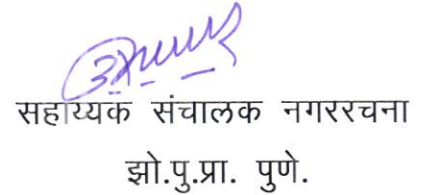 सहाय्यक संचालक नगररचना
झो.पु.प्रा. पुणे.